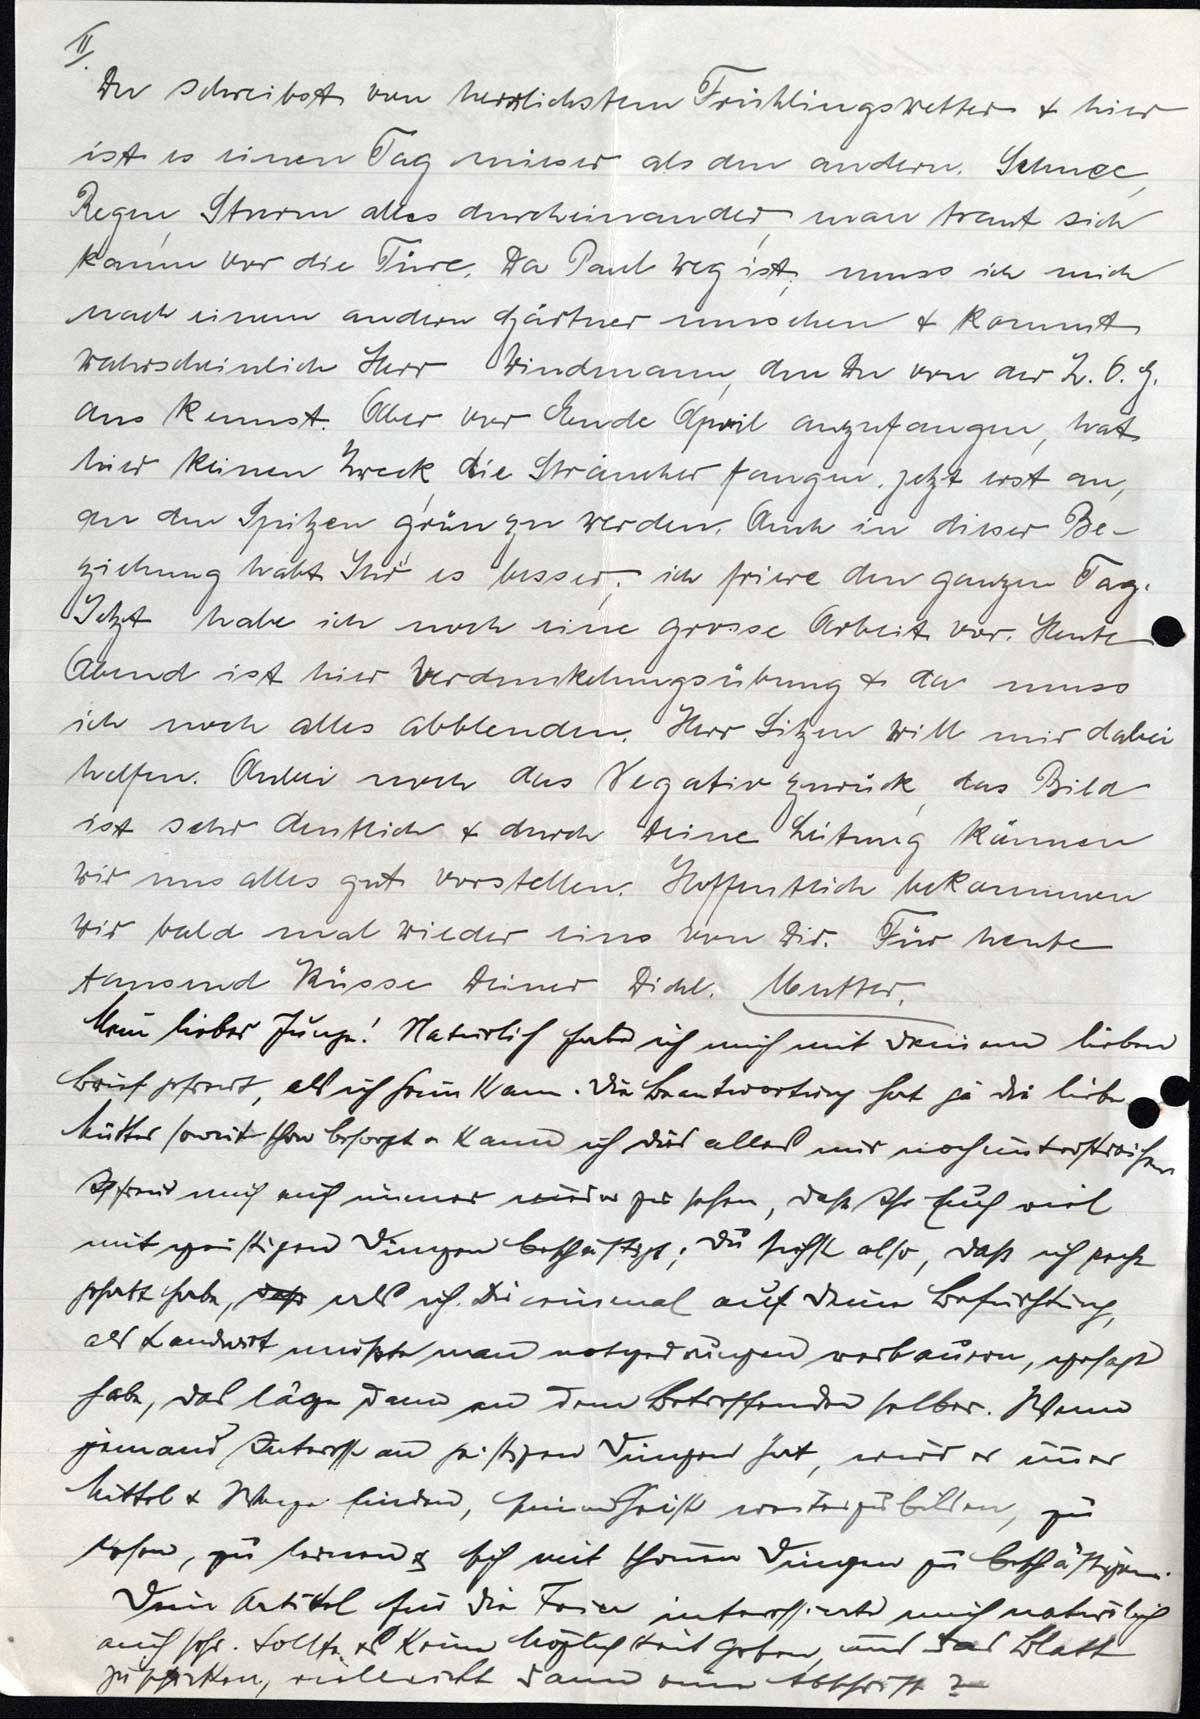 II.
Du schreibst von herrlichstem Frühlingswetter & hier
ist es einen Tag mieser als den andern. Schnee,
Regen, Sturm alles durcheinander, man traut sich
kaum vor die Türe. Da Paul weg ist, muss ich mich
nach einem andern Gärtner umsehen & kommt
wahrscheinlich Herr Windmann, den Du von der Z.O.G.
aus kennst. Aber vor Ende April anzufangen, hat
hier keinen Zweck, die Sträucher fangen jetzt erst an,
an den Spitzen grün zu werden. Auch in dieser Be-
ziehung habt Ihr es besser, ich friere den ganzen Tag.
Jetzt habe ich noch eine grosse Arbeit vor. Heute
Abend ist hier Verdunkelungsübung & da muss
ich noch alles abblenden. Herr Sitzen will mir dabei
helfen. Anbei noch das Negativ zurück, das Bild
ist sehr deutlich & durch Deine Leitung können
wir uns alles gut vorstellen. Hoffentlich bekommen
wir bald mal wieder eins von Dir. Für heute
tausend Küsse Deiner Dichl. Mutter.
Mein lieber Junge! Natürlich habe ich mich mit Deinem lieben
Brief gefreut, als ich kann. Die Beantwortung hat ja die liebe
Mutter soweit schon besorgt & kann ich das alles nur noch unterstreichen
Ich freue mich auch immer wieder zu sehen, dass Ihr Euch viel
mit geistigen Dingen beschäftigt; Du siehst also, dass ich recht
gehabt habe, als ich Dir einmal auf Deine Befürchtung,
als Landwirt müsste man notgedrungen verbauern, gesagt
habe, das läge dann an dem Betreffenden selber. Wenn
jemand Interesse an geistigen Dingen hat, wird er immer
Mittel & Wege finden, seinen Geist weiterzubilden, zu
lesen, zu lernen & sich mit schönen Dingen zu beschäftigen.
Dein Artikel für die Feier interessierte mich natürlich
auch sehr. Sollte es keine Möglichkeit geben, uns das Blatt
zu schicken, vielleicht dann eine Abschrift?